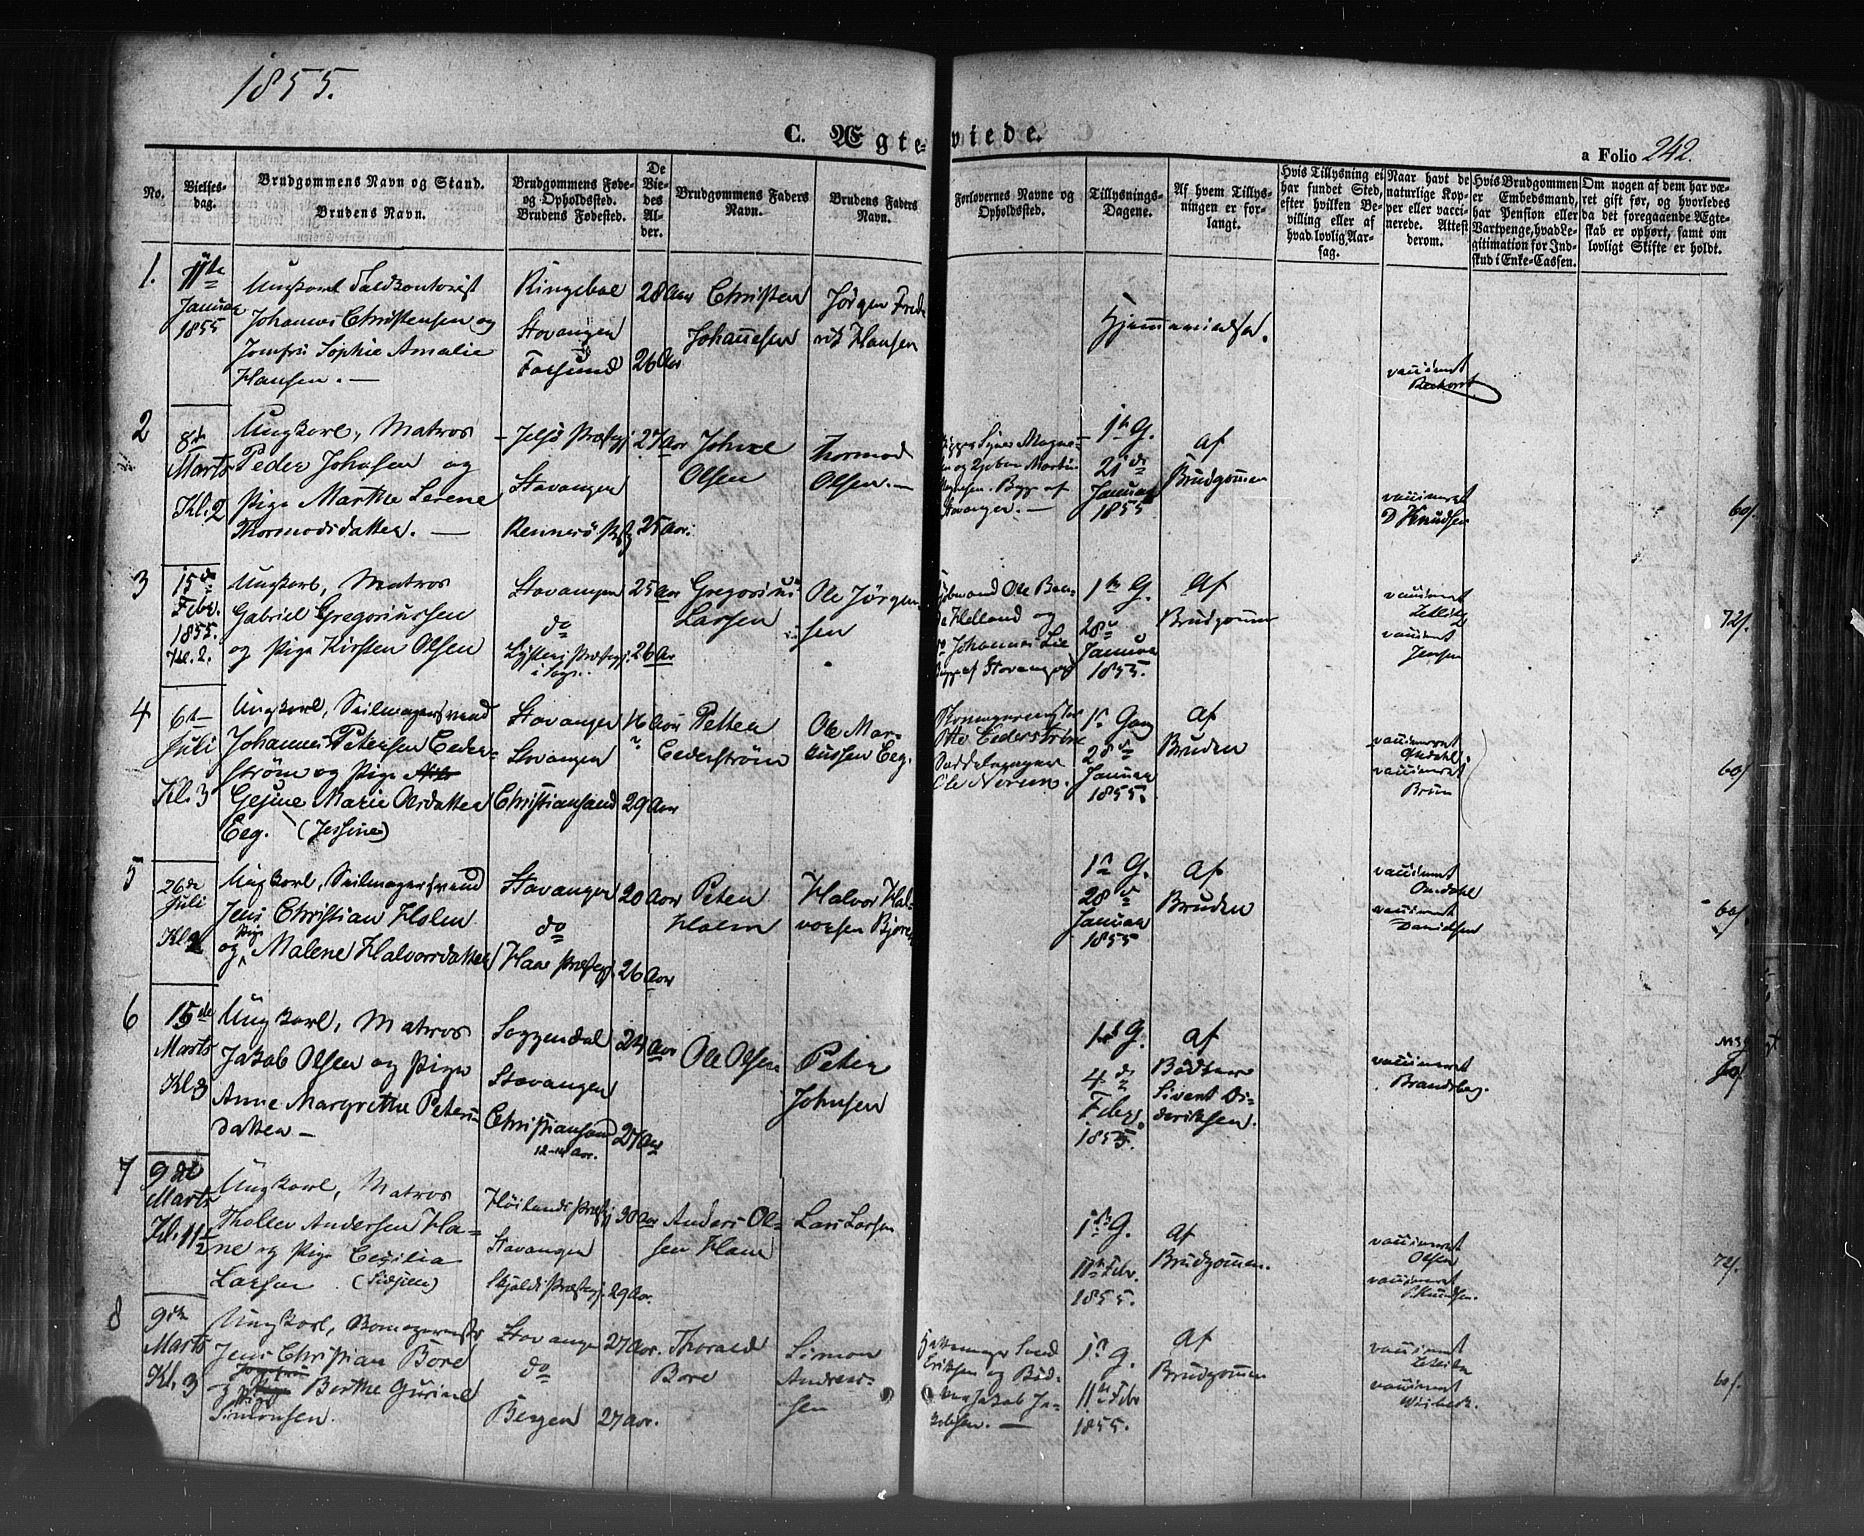 1855.
C. Ægteviede.
a Folio 242.
No.
Vielses-
dag.
Brudgommens Navn og Stand.
Brudens Navn.
Brudgommens Føde-
og Opholdssted.
Brudens Fødested.
De
Vie-
des
Al-
der.
Brudgommens Faders
Navn.
Brudens Faders
Navn.
Forlovernes Navne og
Opholdssted.
Tillysnings-
Dagene.
Af hvem Tillys-
ningen er for-
langt.
Hvis Tillysning ei
har fundet Sted,
efter hvilken Be-
villing eller af
hvad lovlig Aar-
sag.
Naar havt de
naturlige Kop-
per eller vacci-
nerede. Attest
derom.
Hvis Brudgommen
er Embedsmand,
har Pension eller
Vartpenge, hvad Le-
gitimation for Ind-
skud i Enke-Cassen.
Om nogen af dem har væ-
ret gift før, og hvorledes
da det foregaaende Ægte-
skab er ophørt, samt om
lovligt Skifte er holdt.
1.
11te
Januar
1855
Ungkarl Toldkontorist
Johannes Christensen og
Jomfru Sophie Amalie
Hansen. —
Ringeboe
Stavanger
Farsund
28 Aar
26 Aar
Christen
Johannesen
Jørgen Frede
rik Hansen
Hjemmeviedse.
vaccineret
2
8de
Marts
Kl. 2
Ungkarl, Matros
Peder Johnsen og
Pige Marthe Serene
Thormodsdatter. —
Jelsø Præstegj.
Stavanger
Rennesø Pstgj
27 Aar
25 Aar.
Johne
Olsen
Thormod
Olsen. —
Stavanger. —
1te G.
21de
Januar
1855
af
Brudgommen
vaccineret
D Knudsen
60/.
3
15de
Febr.
1855.
Kl. 2.
Ungkarl, Matros
Gabriel Gregoriussen
og Pige Kirsten Olsen
Stavanger
do
Lyster Præstegj.
i Sogn.
25 Aar
26 Aar
Gregorius
Larsen
Ole Jørgen-
sen
Helland og
Johannes Lie
Bygg. af Stavanger
1te G.
28de
Januar
1855.
Af
Brudgommen
vaccineret
Zetlitz
vaccineret
Jensen
72/.
4
6te
Juli
Kl. 3
Ungkarl, Seilmagersvend
Johannes Petersen Ceder-
strøm og Pige
Gesine Marie Olsdatter
Eeg. (Jessine)
Stavanger
Stavanger
Christiansand
29 Aar
Petter
Cederstrøm
Ole Mar-
kussen Eeg.
Otto Cederstrøm
Ole Noreen.
1te Gang
28de
Januar
1855.
Af
Bruden
vaccineret
Omdahl
vaccineret
Bruun
60/.
5
26de
Juli
Kl 2
Ungkarl, Seilmagersvend
Jens Christian Holm
og Pige Malene Halvorsdatter
Stavanger
do
Haae Præstegj
20 Aar
26 Aar
Peter
Holm
Halvor Hal-
vorsen Bjørn
1te G.
28de
Januar
1855
af
Bruden
vaccineret
Omdahl
vaccineret
Davidsen
60/.
6
15de
Marts
Kl 3
Ungkarl, Matros
Jakob Olsen og Pige
Anne Margrethe Peters-
datter —
Soggendal
Stavanger
Christiansand
12-14 Aar.
24 Aar
27 Aar
Ole Olsen
Peter
Johnsen
1te G.
4de
Febr.
1855.
af
Bødker
Sivert Di-
deriksen.
vaccineret
Brandsberg.
7
9de
Marts
Kl. 11½
Ungkarl, Matros
Tholler Andersen Ha-
ne og Pige Cecilia
Larsen (Sidsele)
Høilands Præstegj
Stavanger
Skjolds Præstegj.
30 Aar
29 Aar.
Anders Ol-
sen Hane
Lars Larsen
1te G.
11te Febr.
1855.
af
Brudgommen.
vaccineret
Olsen
vaccineret
Knudsen.
72/.
8
9de
Marts
Kl. 3
Jens Christian Bore
Jomfru
Berthe Gurine
Simonsen.
Stavanger
do
Bergen
27 Aar.
27 Aar.
Thorvald
Bore
Simon
Andreas-
sen
Hattemager Svend
Eriksen og Bød-
ker Jakob Ja-
kobsen. —
1te G.
11te Febr
1855.
af
Brudgommen
vaccineret
Zetlitz
vaccineret
60/.